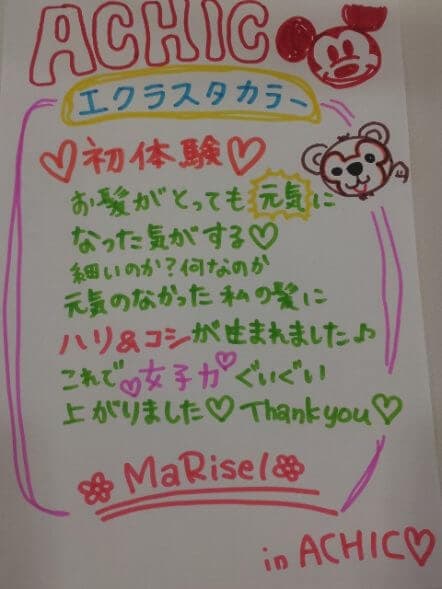 ACHIC
エクラスタカラー
♡初体験♡
お髪がとっても元気に
なった気がする♡
細いのか？何なのか
元気のなかった私の髪に
ハリ&コシが生まれました♪
これで♡女子力♡ぐいぐい
上がりました♡Thank you♡
MaRisel
in ACHIC♡